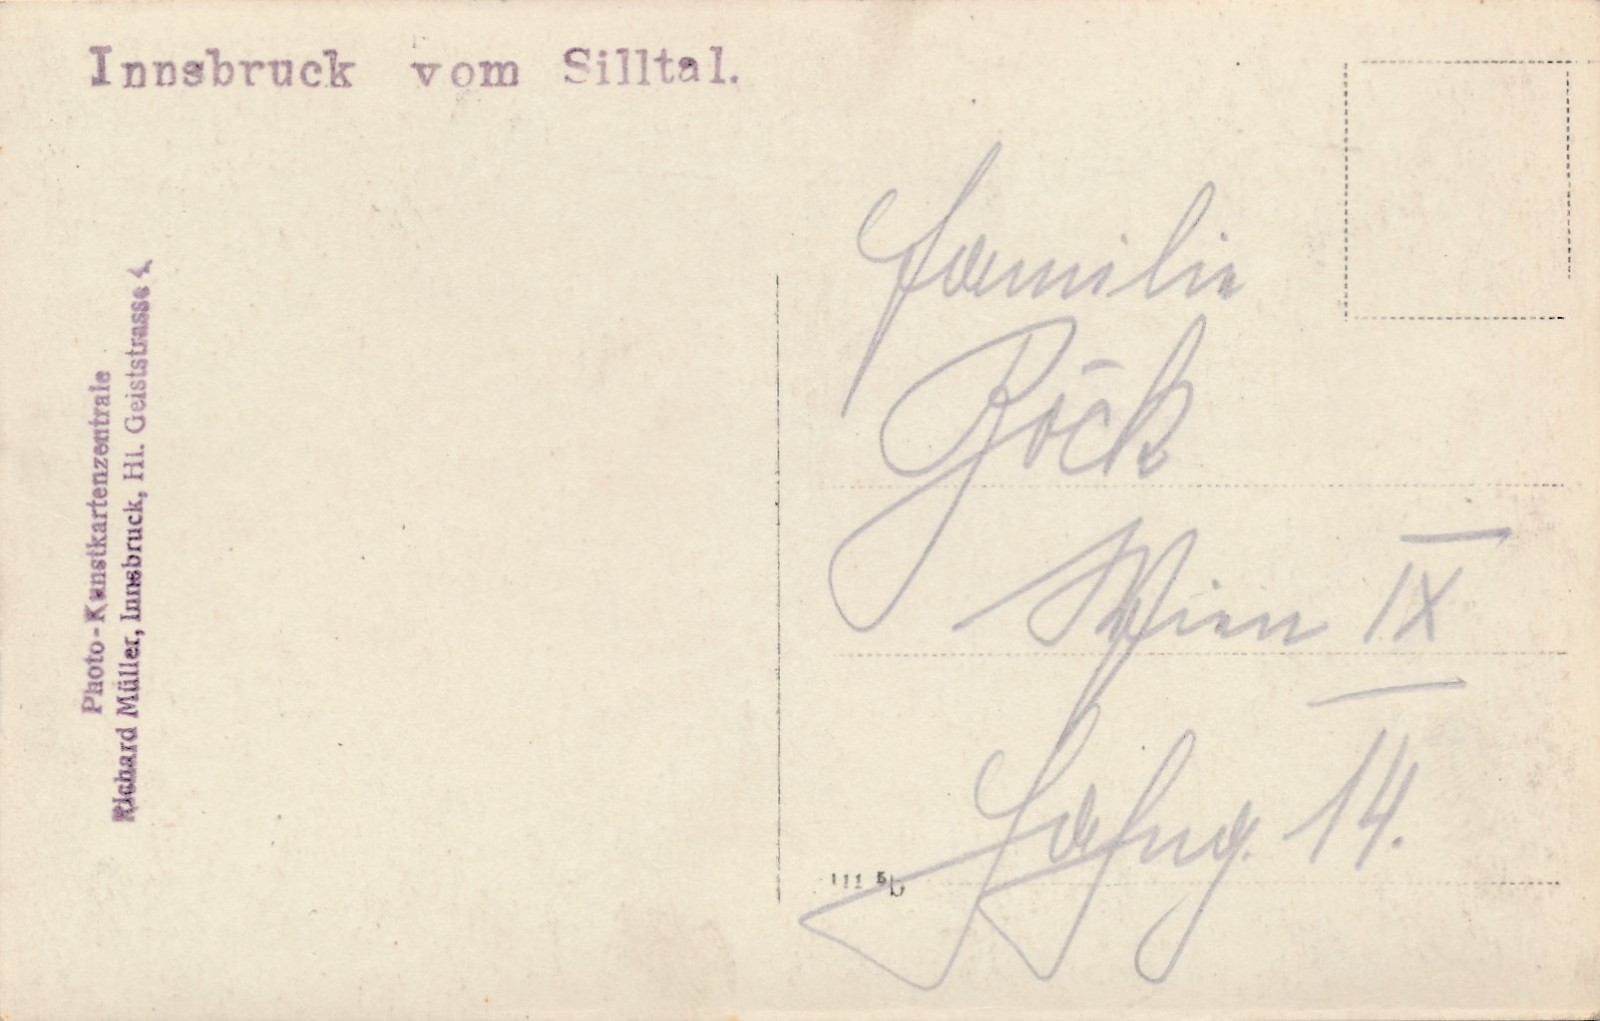 Innsbruck vom Silltal.
Photo-Kunstkartenzentrale
Richard Müller, Innsbruck, Hl. Geiststrasse 4
Familie
Böck
Wien IX
14.
111 5b